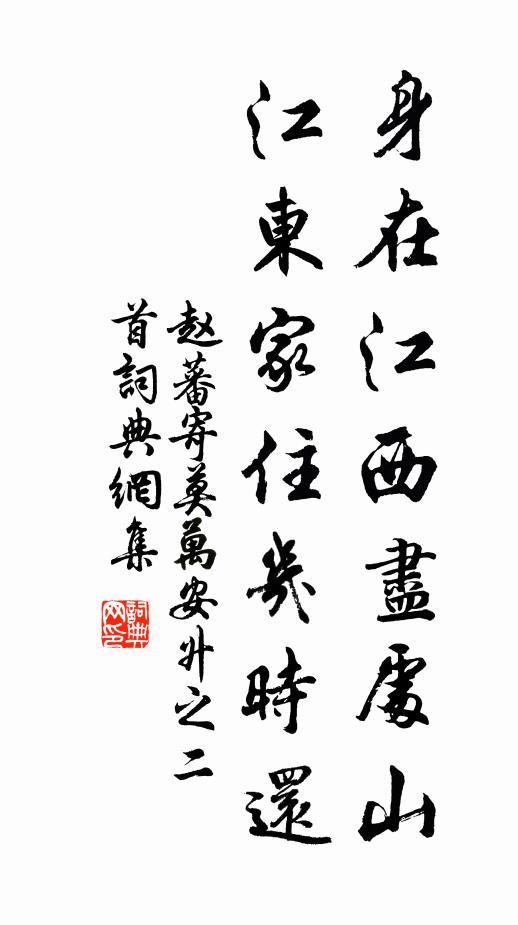 身在江西盡處山
江東家住幾時還
赵蕃寄莫萬安卅之二
首詞典網集
詞典网印